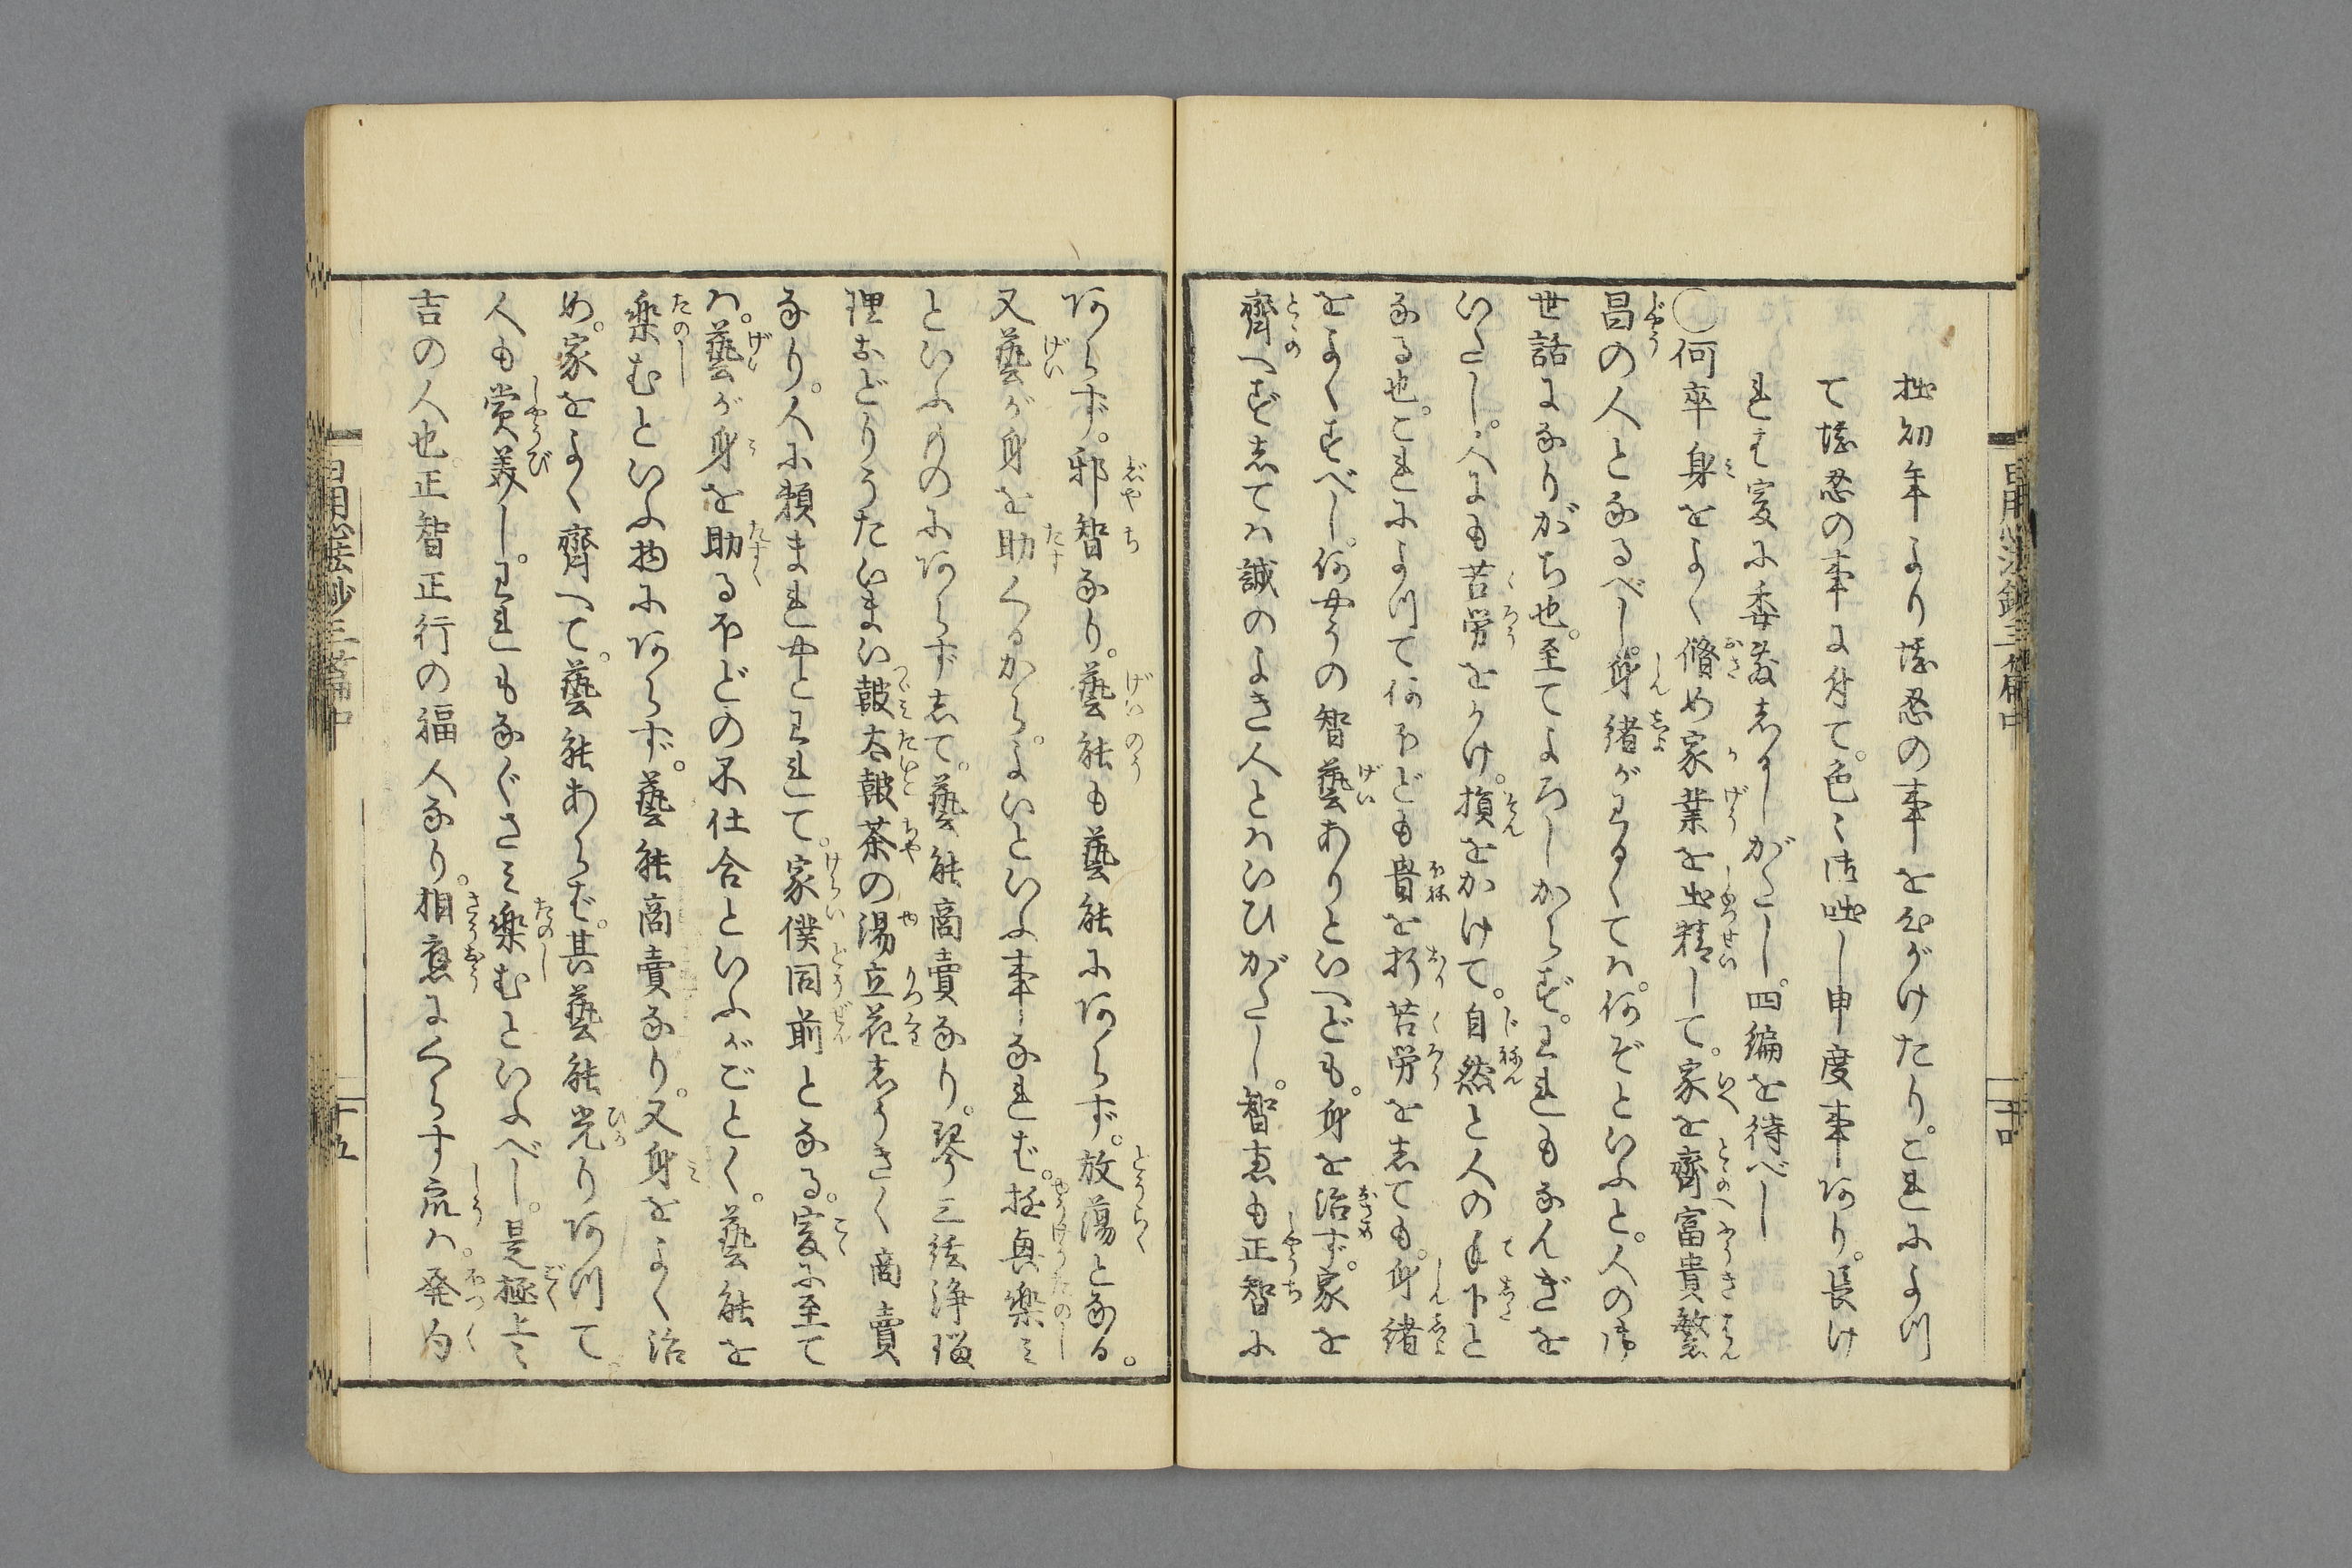 拙幼年より堪忍の事を心がけたり。これによつ
て堪忍の事に付て。色〻御咄し申度事あり。長け
れば爰に委敷しるしがたし。四編を待べし
○何卒身をよく脩め家業を出精して。家を齊富貴繁
昌の人となるべし。身緒がわるくては。何ぞといふと。人の御
世話になりがち也。至てよろしからず。われもなんぎを
いたし。人にも苦労をかけ。損をかけて。自然と人の手下と
なる也。これによつて何ほども骨を折苦労をしても。身緒
をよくすべし。何やうの智藝ありといへども。身を治ず。家を
齊へずしてハ誠のよき人とハいひがたし。智恵も正智に
あらず。邪智なり。藝能も藝能にあらず。放蕩となる。
又藝が身を助くるから。よいといふ事なれば。遊興楽ミ
といふものにあらずして。藝能商賣なり。琴三弦浄瑠
理おどりうたいまい皷太皷茶の湯立花しうきく商賣
なり。人に頼まれやとわれて。家僕同前となる。爰に至て
ハ。藝が身を助るほどの不仕合といふがごとく。藝能を
楽むといふ物にあらず。藝能商賣なり。又身をよく治
め。家をよく齊へて。藝能あらば。其藝能光りあつて。
人も賞美し。われもなぐさミ楽むといふべし。是極上〻
吉の人也。正智正行の福人なり。相應にくらす衆ハ。発句
日用心法鈔三篇中
十四
日用心法鈔三篇中
十五